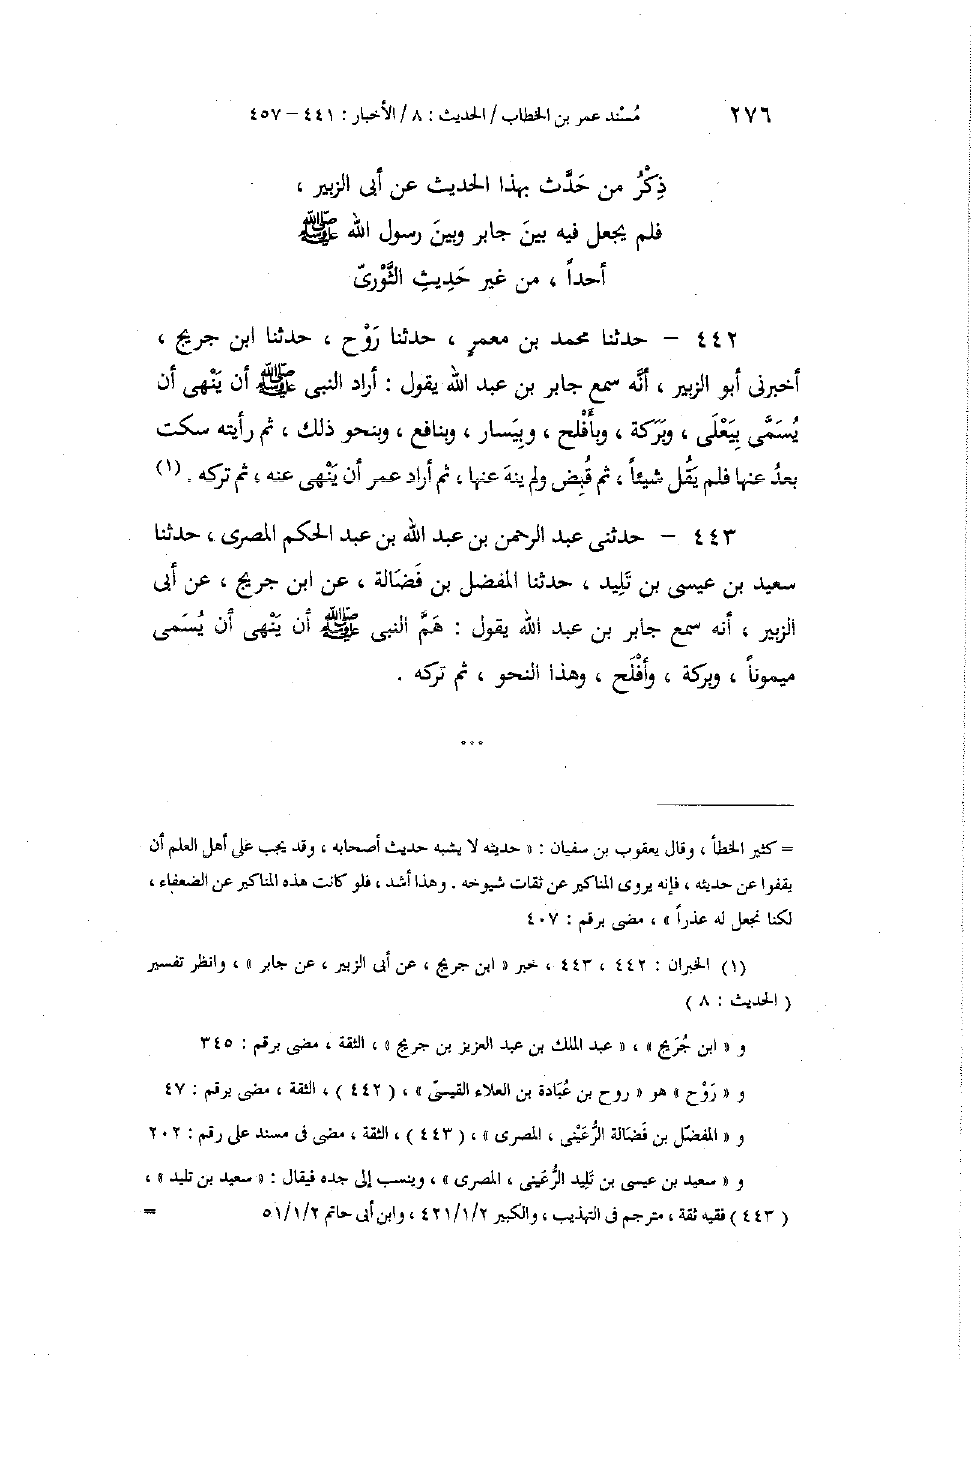 ٢٧٦ مُسْند عمر بن الخطاب / الحديث : ٨ / الأخبار : ٤٤١ – ٤٥٧
ذِكْرُ من حَدَّث بهذا الحديث عن أبى الزبير ،
فلم يجعل فيه بينَ جابر وبينَ رسول الله ﷺ
أحداً ، من غير حَدِيثِ الثَّوْرىّ
٤٤٢ – حدثنا محمد بن معمرٍ ، حدثنا رَوْح ، حدثنا ابن جريج ،
أخبرنى أبو الزبير ، أنَّه سمع جابر بن عبد الله يقول : أراد النبى ﷺ أن يَنْهى أن
يُسَمَّى بِيَعْلَى ، وبَرَكة ، وبأَفْلح ، وبِيَسار ، وبنافع ، وبنحو ذلك ، ثم رأيته سكت
بعدُ عنها فلم يَقُل شيئاً ، ثم قُبِض ولم ينهَ عنها ، ثم أراد عمر أن يَنْهى عنه ، ثم تركه . (١)
٤٤٣ – حدثنى عبد الرحمن بن عبد الله بن عبد الحكم المصرى ، حدثنا
سعيد بن عيسى بن تَلِيد ، حدثنا المفضل بن فَضَالة ، عن ابن جريج ، عن أبى
الزبير ، أنه سمع جابر بن عبد الله يقول : هَمَّ النبى ﷺ أن يَنْهى أن يُسَمى
ميموناً ، وبركة ، وأَفْلَح ، وهذا النحو ، ثم تركه .
°°°
= كثير الخطأ ، وقال يعقوب بن سفيان : « حديثه لا يشبه حديث أصحابه ، وقد يجب على أهل العلم أن
يقفوا عن حديثه ، فإنه يروى المناكير عن ثقات شيوخه . وهذا أشد ، فلو كانت هذه المناكير عن الضعفاء ،
لكنا نجعل له عذراً » ، مضى برقم : ٤٠٧
(١) الخبران : ٤٤٢ ، ٤٤٣ ، خبر « ابن جريج ، عن أبى الزبير ، عن جابر » ، وانظر تفسير
( الحديث : ٨ )
و « ابن جُرَيج » ، « عبد الملك بن عبد العزيز بن جريج » ، الثقة ، مضى برقم : ٣٤٥
و « رَوْح » هو « روح بن عُبَادة بن العلاء القيسىّ » ، ( ٤٤٢ ) ، الثقة ، مضى برقم : ٤٧
و « المفضّل بن فَضَالة الرُّعَيْنى ، المصرى » ، ( ٤٤٣ ) ، الثقة ، مضى فى مسند على رقم : ٢٠٢
و « سعيد بن عيسى بن تَلِيد الرُّعَينى ، المصرى » ، وينسب إلى جده فيقال : « سعيد بن تليد » ،
( ٤٤٣ ) فقيه ثقة ، مترجم فى التهذيب ، والكبير ٤٢١/١/٢ ، وابن أبى حاتم ٥١/١/٢ =